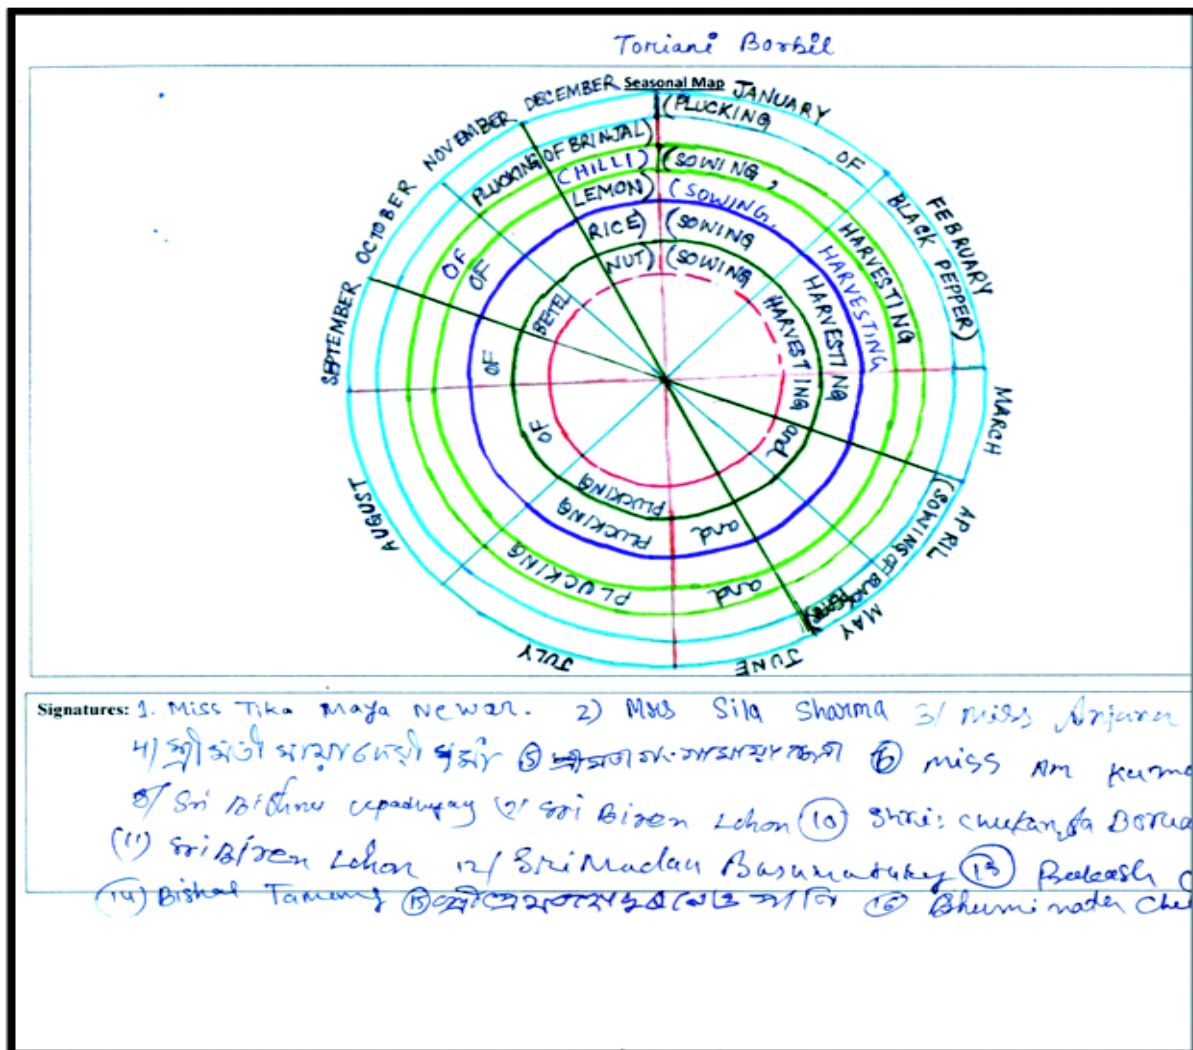 Toriani Borbil
Seasonal Map
JANUARY
FEBRUARY
MARCH
APRIL
MAY
JUNE
JULY
AUGUST
SEPTEMBER
OCTOBER
NOVEMBER
DECEMBER
(PLUCKING OF BLACK PEPPER)
(SOWING OF BLACK PEPPER)
PLUCKING OF BRINJAL)
(SOWING, HARVESTING and PLUCKING OF CHILLI)
(SOWING, HARVESTING OF LEMON)
(SOWING HARVESTING and PLUCKING OF RICE)
(SOWING HARVESTING and PLUCKING OF BETEL NUT)
Signatures: 1. Miss Tika Maya Newar. 2) Mrs Sila Sharma 3/ Miss Anjana
4) শ্রীমতী 5 6 Miss Am
8/ Sri Bishnu Upadhyay 9/ Sri Biren Lohon 10 Shri: Chukanfa Borua
(11) Sri Biren Lohon 12/ Sri Madan Basumatary 13
(14) Bishal Tamang 15 16